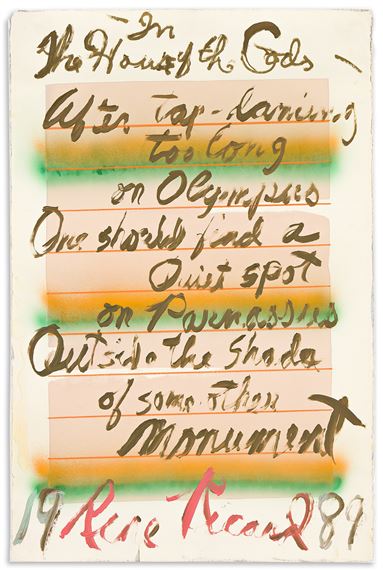 In
The House of the Gods
After tap-dancing
too long
on Olympus
One should find a
Quiet spot
on Parnassus
Outside the Shade
of some other
Monument
19 Rene Ricard 89